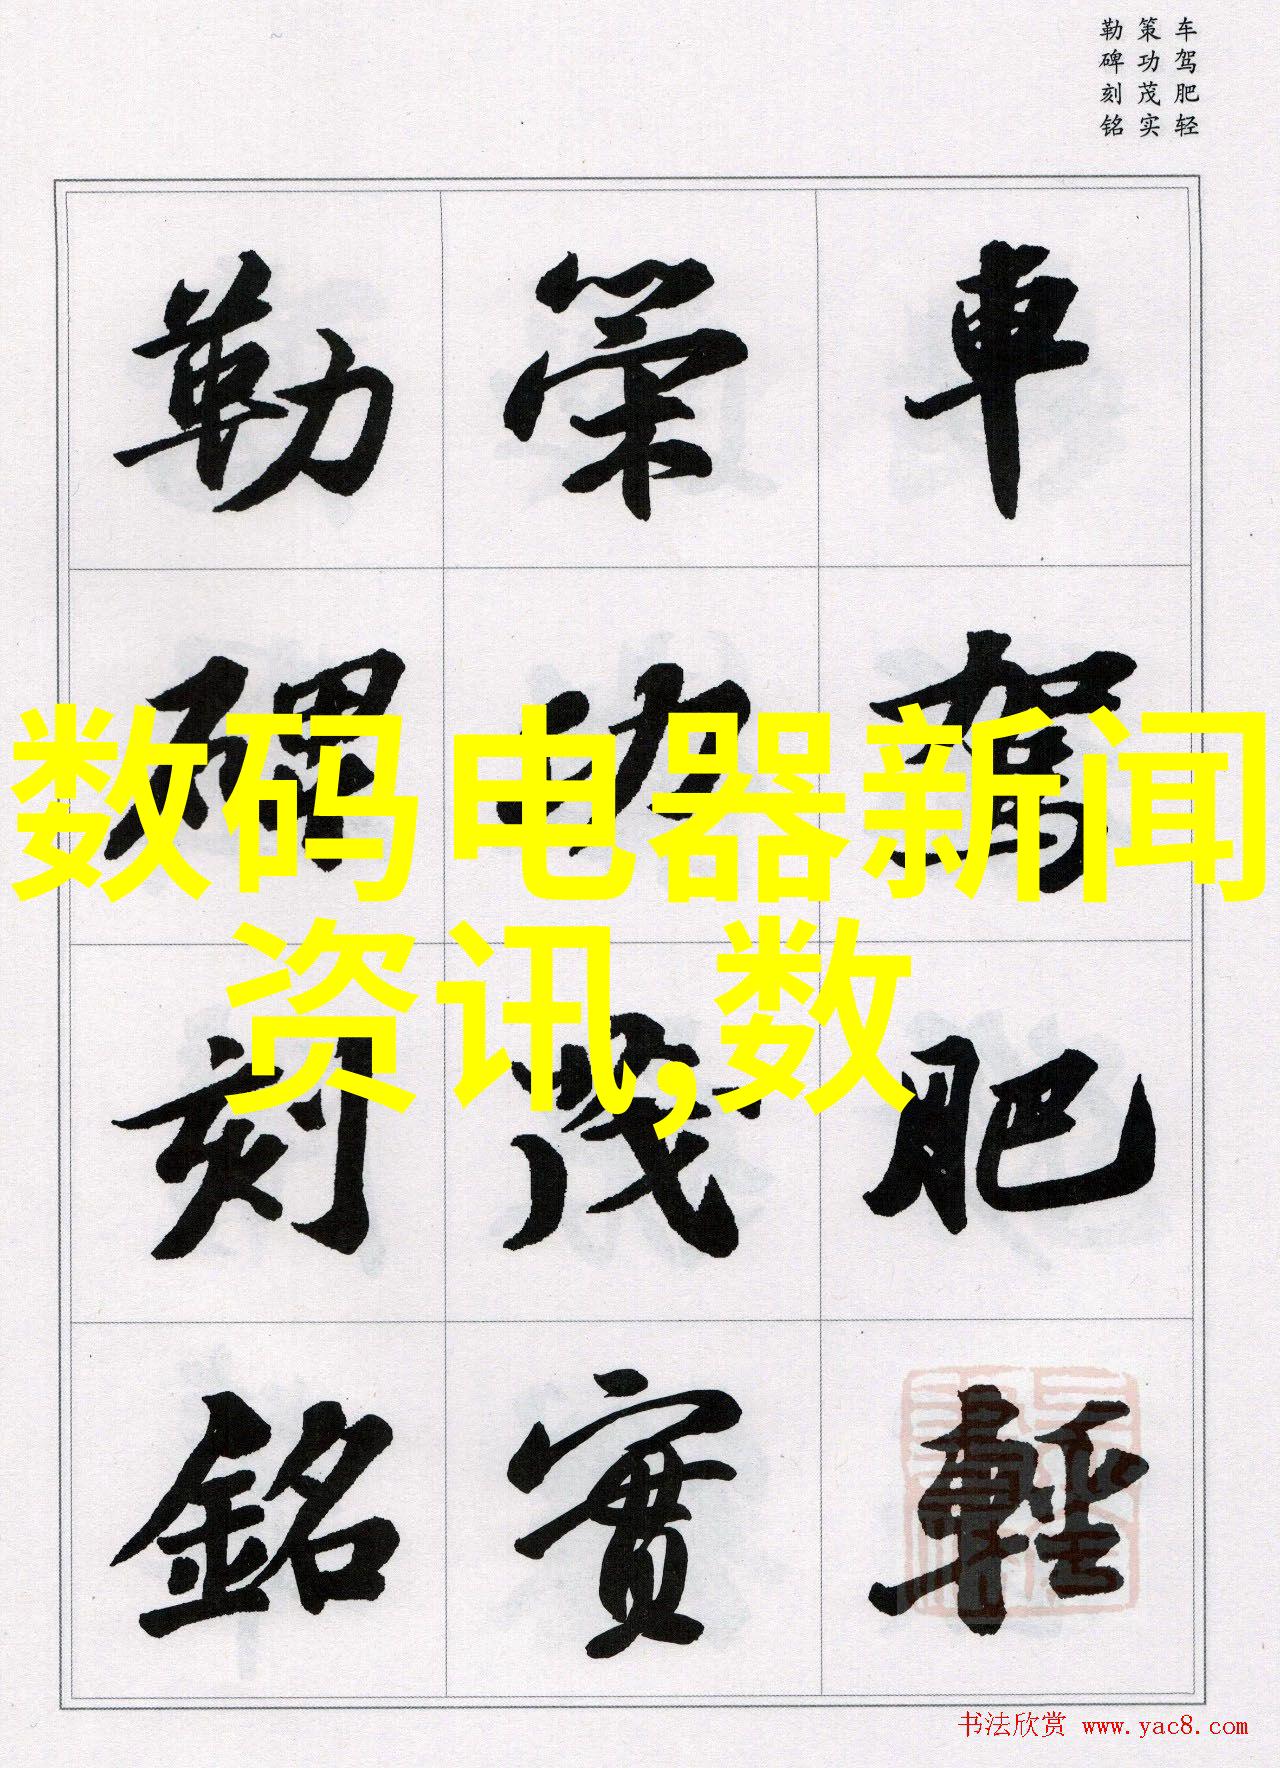 车驾肥轻
策功茂实
勒碑刻铭
車駕肥輕
策功茂實
勒碑刻銘
数码电器新闻
资讯,数
书法欣赏 www.yac8.com